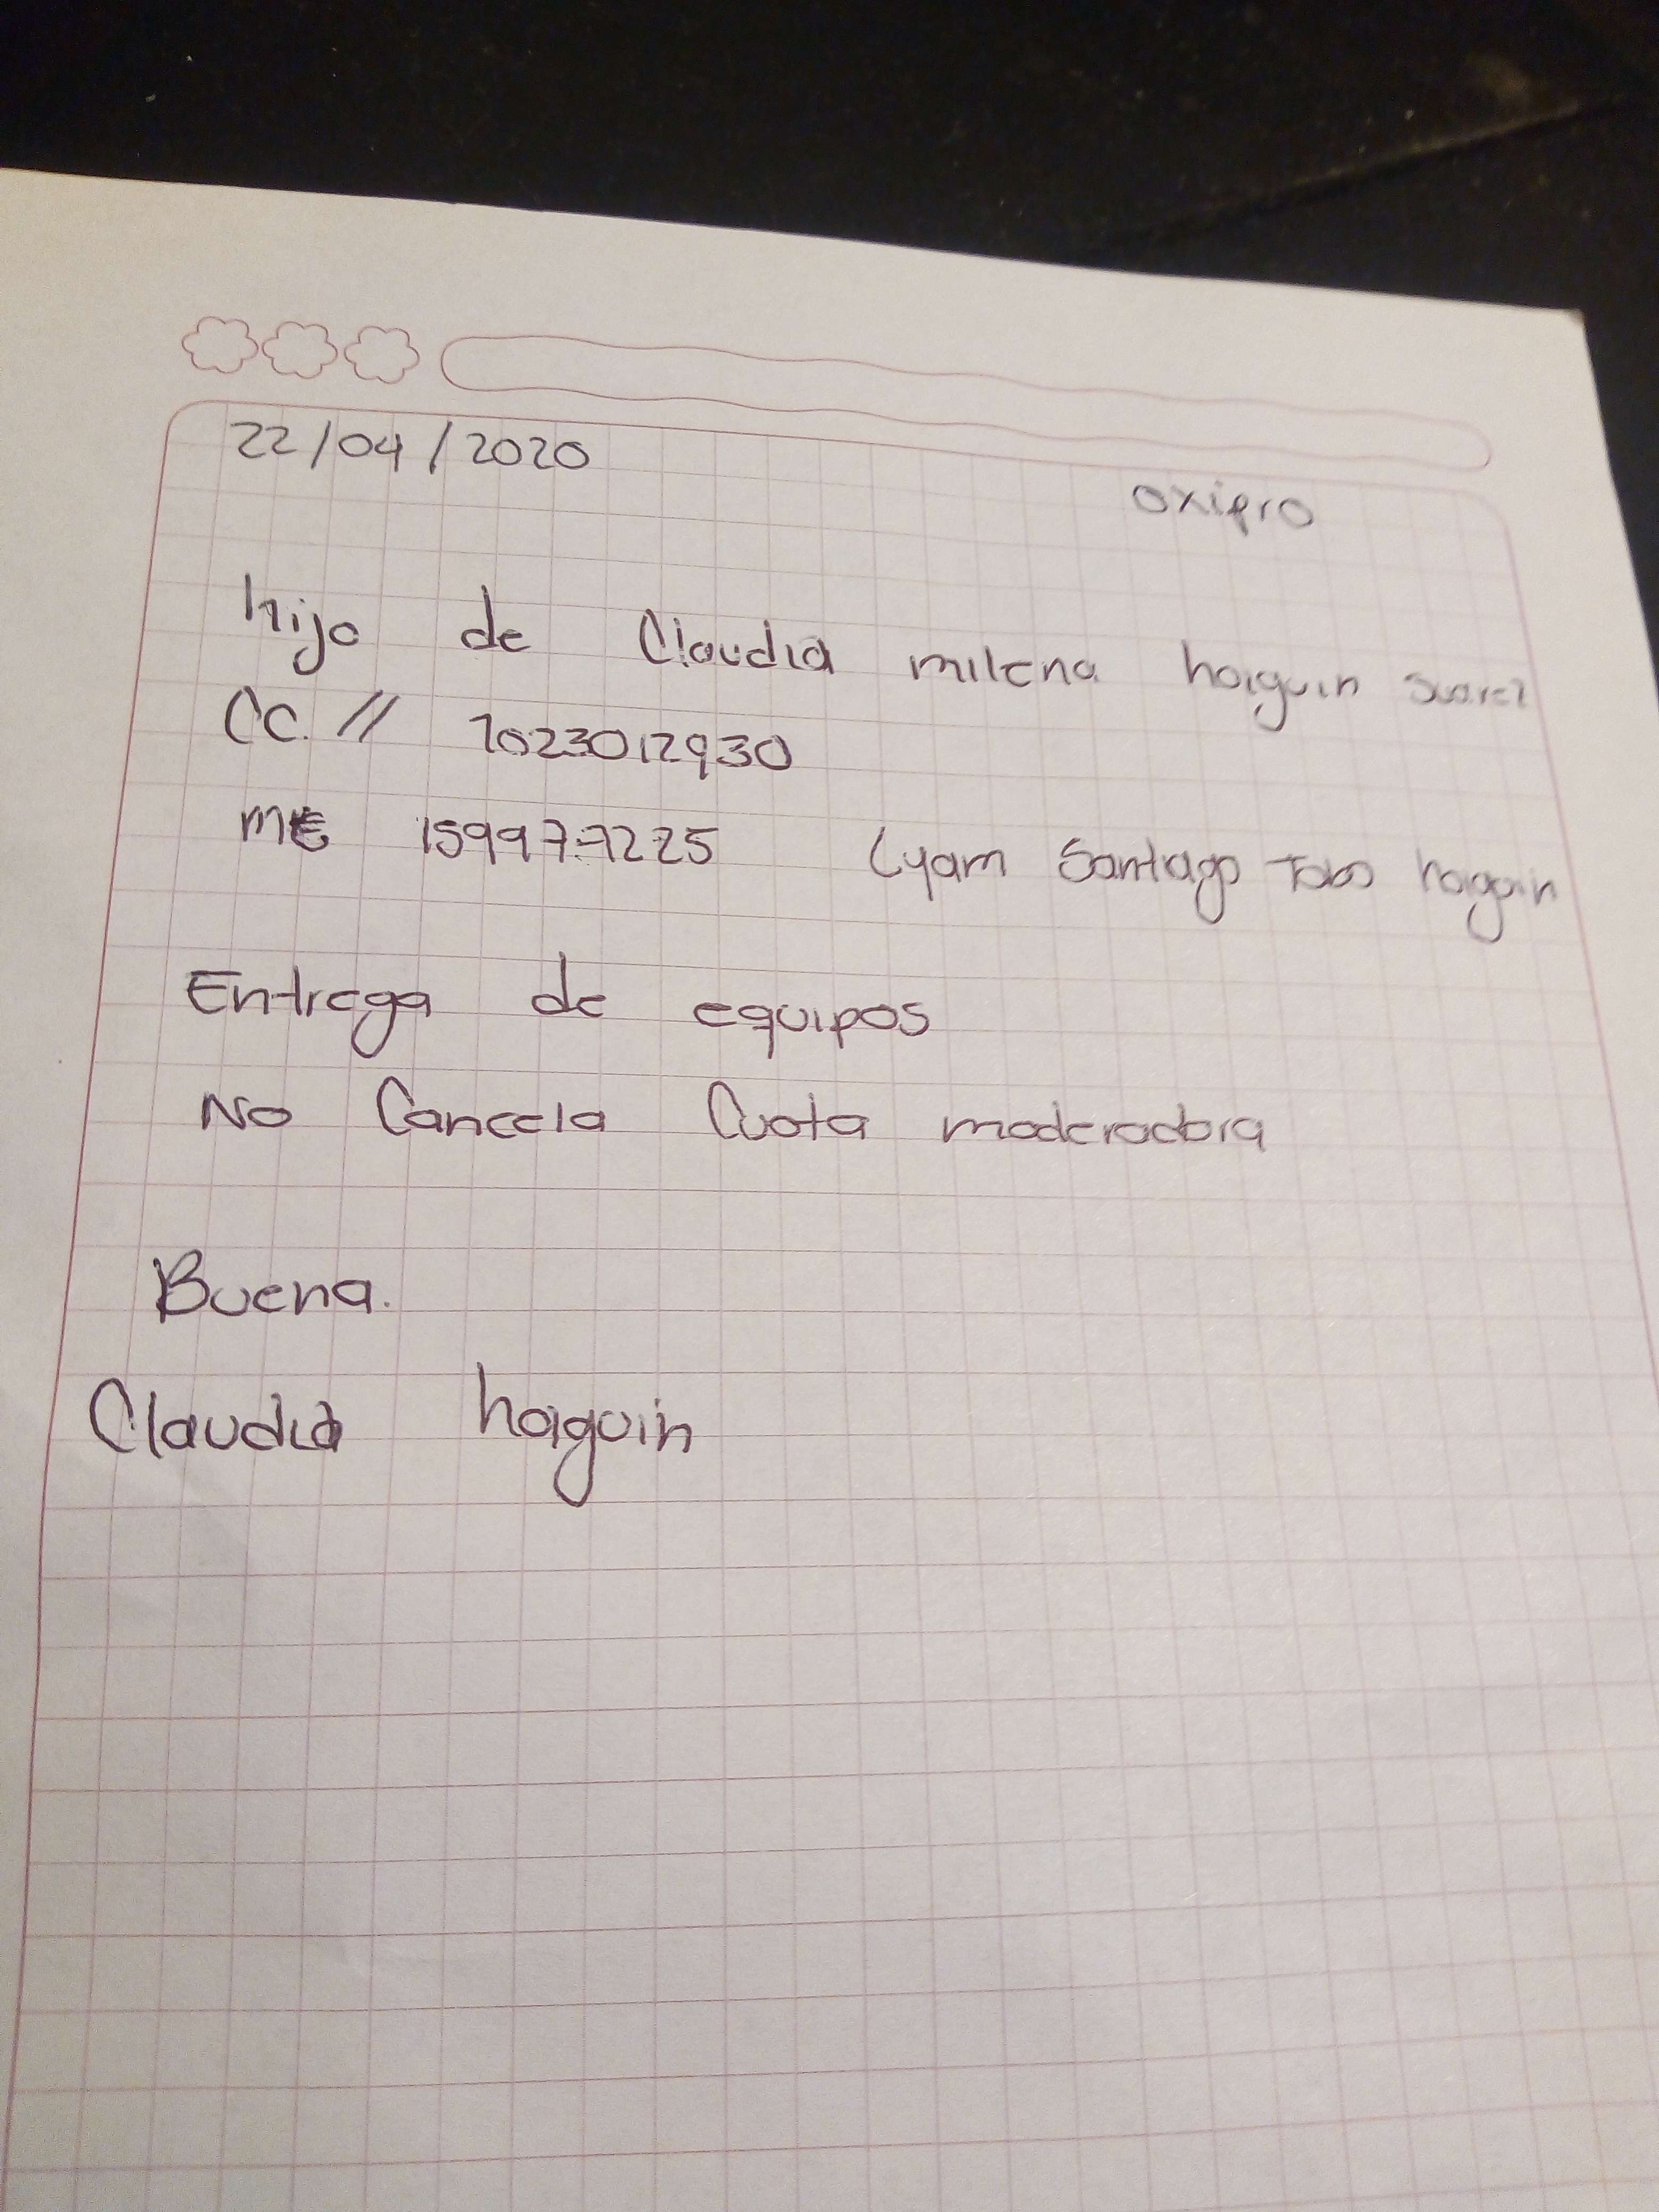 22/04/2020
oxipro
hijo de Claudia milena holguin suarez
CC. // 1023012930
ME 1599737225 Lyam Santiago Tobo holguin
Entrega de equipos
No Cancela Cuota moderadora
Buena.
Claudia holguin